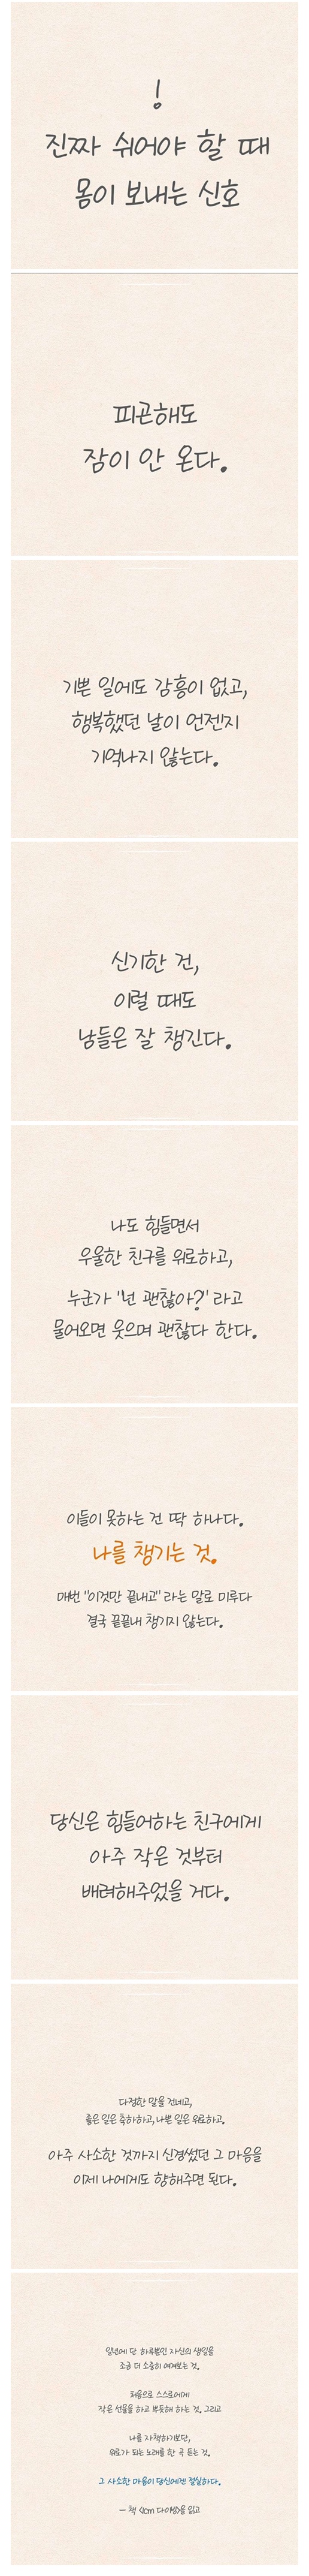 !
진짜 쉬어야 할 때
몸이 보내는 신호
피곤해도
잠이 안 온다.
기쁜 일에도 감흥이 없고,
행복했던 날이 언젠지
기억나지 않는다.
신기한 건,
이럴 때도
남들은 잘 챙긴다.
나도 힘들면서
우울한 친구를 위로하고,
누군가 '넌 괜찮아?' 라고
물어오면 웃으며 괜찮다 한다.
이들이 못하는 건 딱 하나다.
나를 챙기는 것.
매번 "이것만 끝내고" 라는 말로 미루다
결국 끝끝내 챙기지 않는다.
당신은 힘들어하는 친구에게
아주 작은 것부터
배려해주었을 거다.
다정한 말을 건네고,
좋은 일은 축하하고, 나쁜 일은 위로하고.
아주 사소한 것까지 신경썼던 그 마음을
이제 나에게도 향해주면 된다.
일년에 단 하루뿐인 자신의 생일을
조금 더 소중히 여겨보는 것.
처음으로 스스로에게
작은 선물을 하고 뿌듯해 하는 것. 그리고
나를 자책하기보단,
위로가 되는 노래를 한 곡 듣는 것.
그 사소한 마음이 당신에겐 절실하다.
– 책 <1cm 다이빙>을 읽고